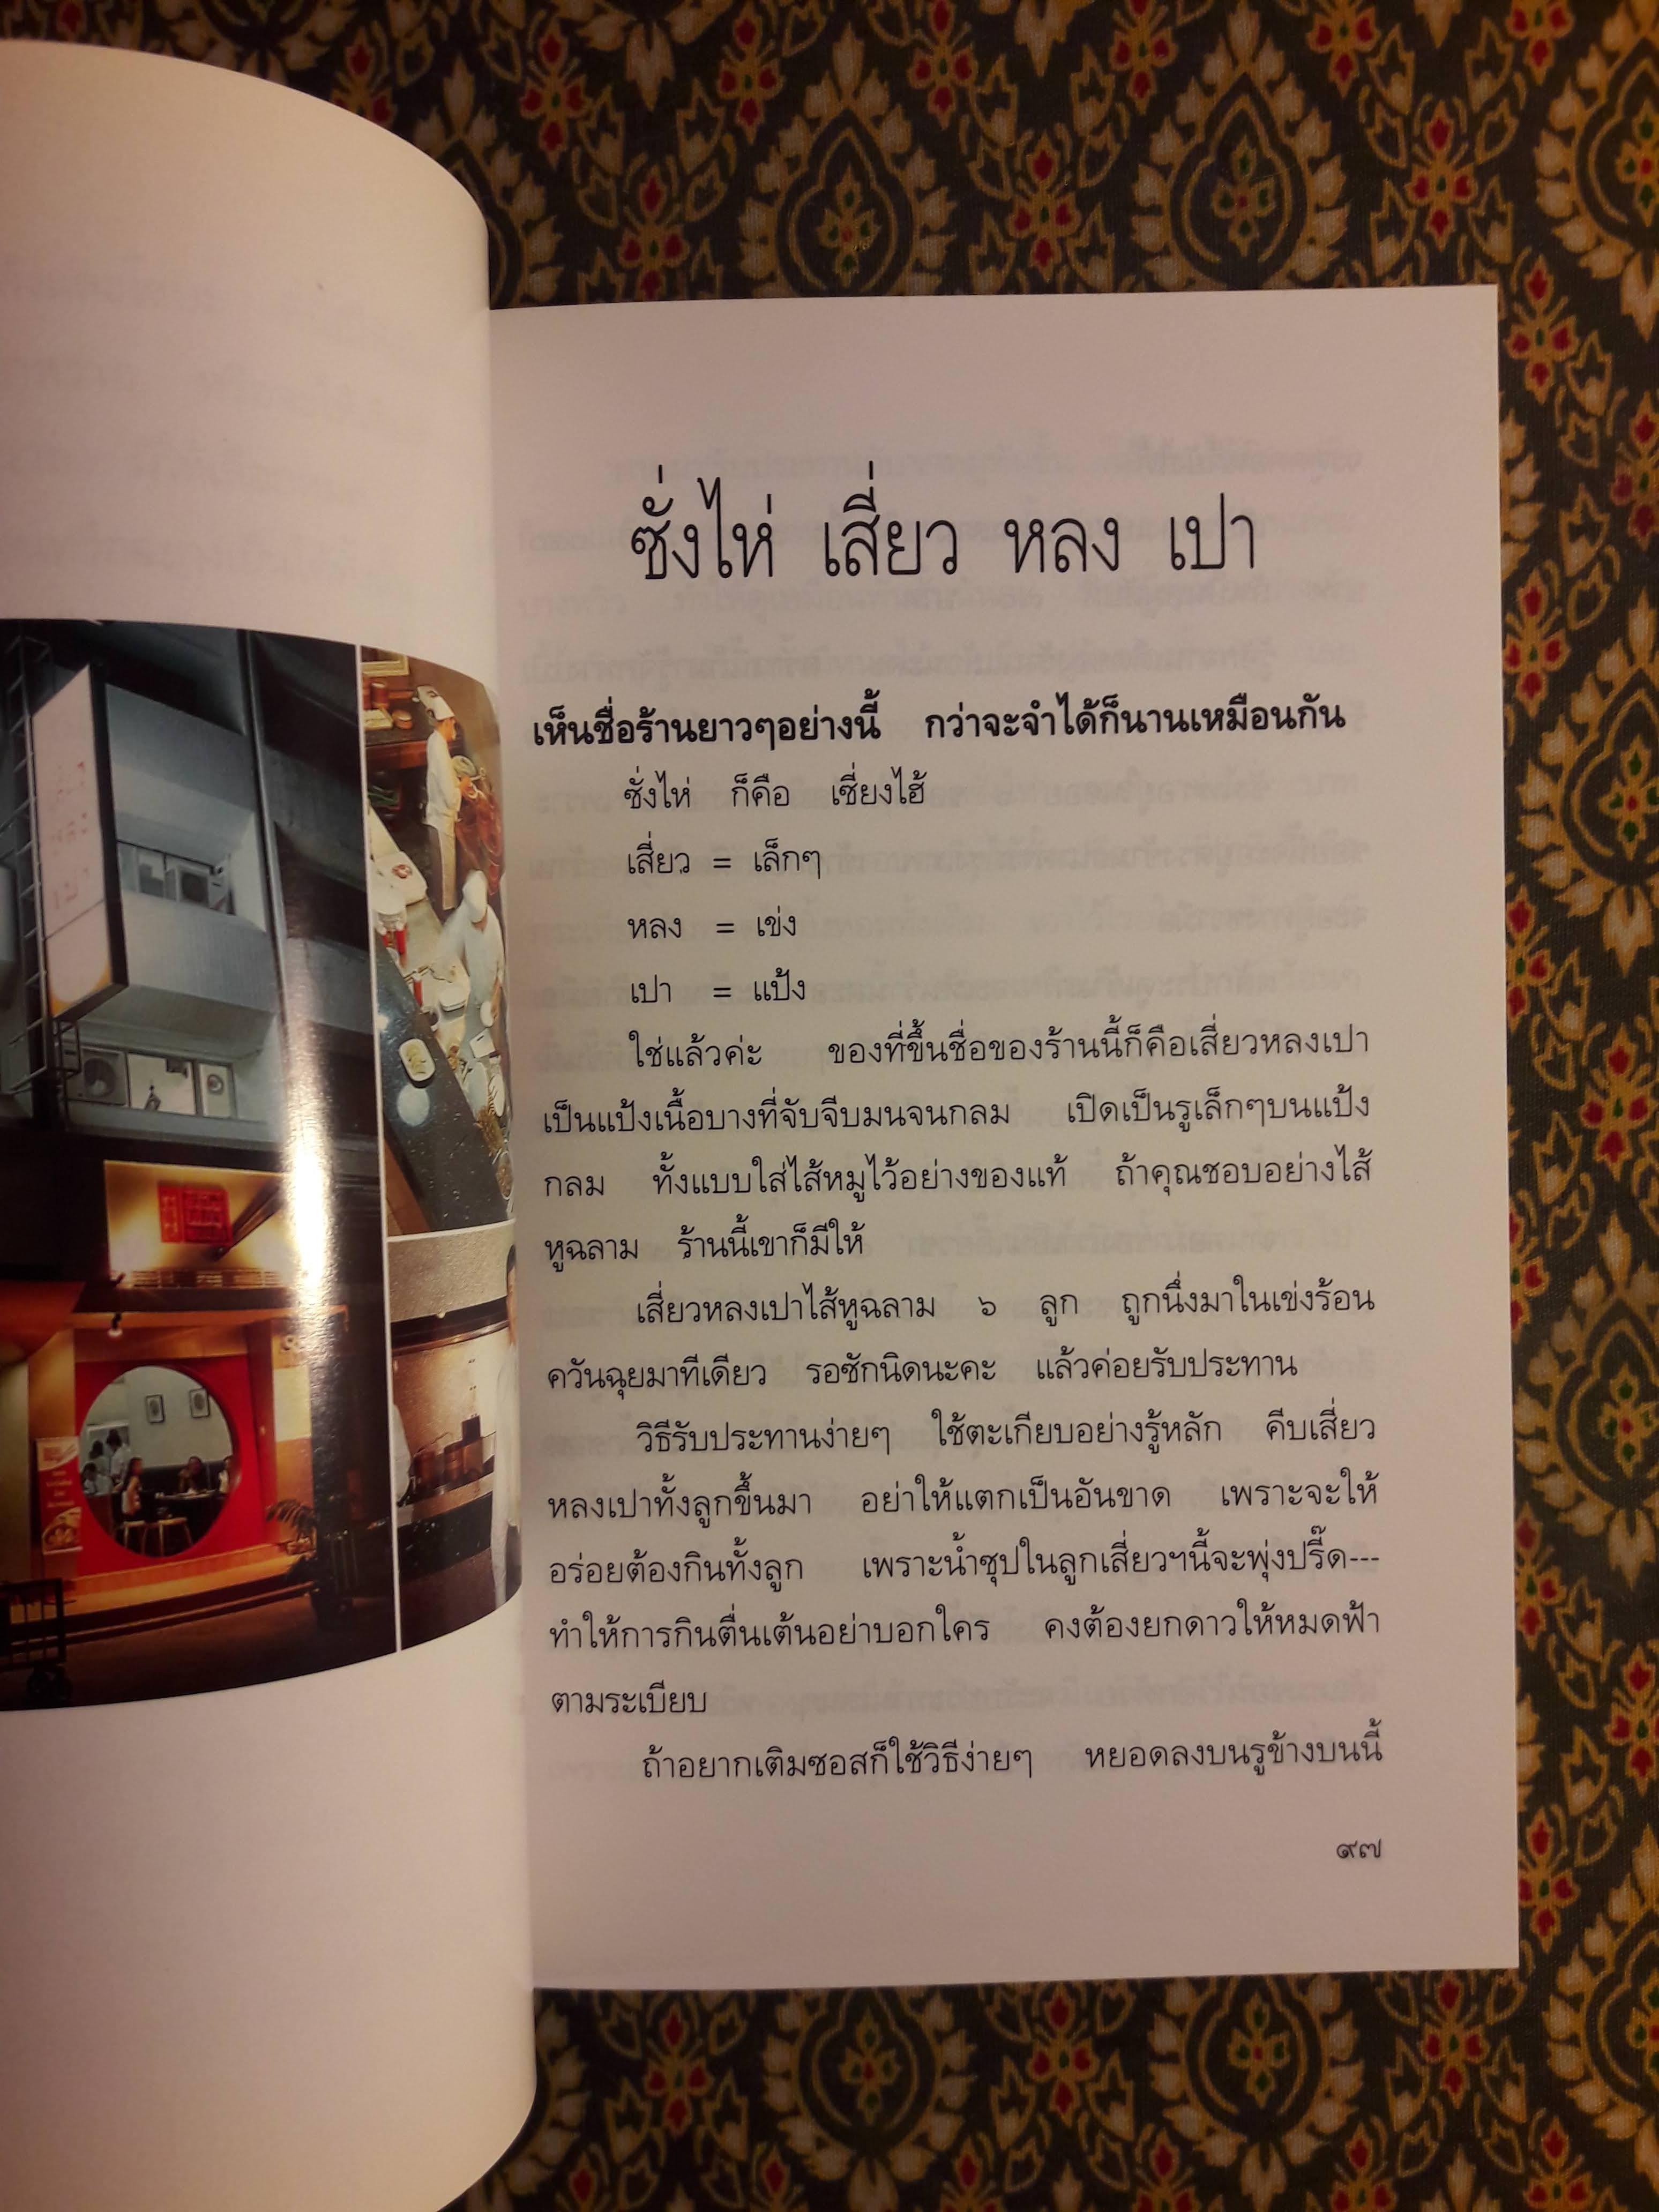 ซั่งไห่ เสี่ยว หลง เปา
เห็นชื่อร้านยาวๆอย่างนี้ กว่าจะจำได้ก็นานเหมือนกัน
ซั่งไห่ ก็คือ เซี่ยงไฮ้
เสี่ยว = เล็กๆ
หลง = เข่ง
เปา = แป้ง
ใช่แล้วค่ะ ของที่ขึ้นชื่อของร้านนี้ก็คือเสี่ยวหลงเปา
เป็นแป้งเนื้อบางที่จับจีบมนจนกลม เปิดเป็นรูเล็กๆบนแป้ง
กลม ทั้งแบบใส่ไส้หมูไว้อย่างของแท้ ถ้าคุณชอบอย่างไส้
หูฉลาม ร้านนี้เขาก็มีให้
เสี่ยวหลงเปาไส้หูฉลาม ๖ ลูก ถูกนึ่งมาในเข่งร้อน
ควันฉุยมาทีเดียว รอซักนิดนะคะ แล้วค่อยรับประทาน
วิธีรับประทานง่ายๆ ใช้ตะเกียบอย่างรู้หลัก คีบเสี่ยว
หลงเปาทั้งลูกขึ้นมา อย่าให้แตกเป็นอันขาด เพราะจะให้
อร่อยต้องกินทั้งลูก เพราะน้ำซุปในลูกเสี่ยวฯนี้จะพุ่งปรี๊ด---
ทำให้การกินตื่นเต้นอย่าบอกใคร คงต้องยกดาวให้หมดฟ้า
ตามระเบียบ
ถ้าอยากเติมซอสก็ใช้วิธีง่ายๆ หยอดลงบนรูข้างบนนี้
๙๗